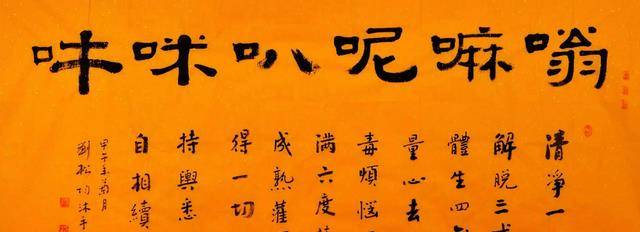 嗡嘛呢叭咪吽
清淨一
解脫二
體生四
量心去
毒煩惱
满六度
成熟灌
得一切
持與悉
自相續
甲子年菊月
劉松均沐手